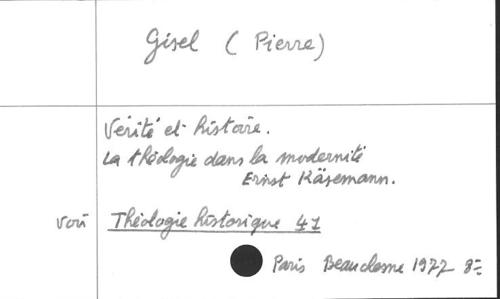 Gisel (Pierre)
Vérité et histoire.
La théologie dans la modernité
Ernst Käsemann.
voir Théologie historique 41
Paris Beauchesne 1977 8=